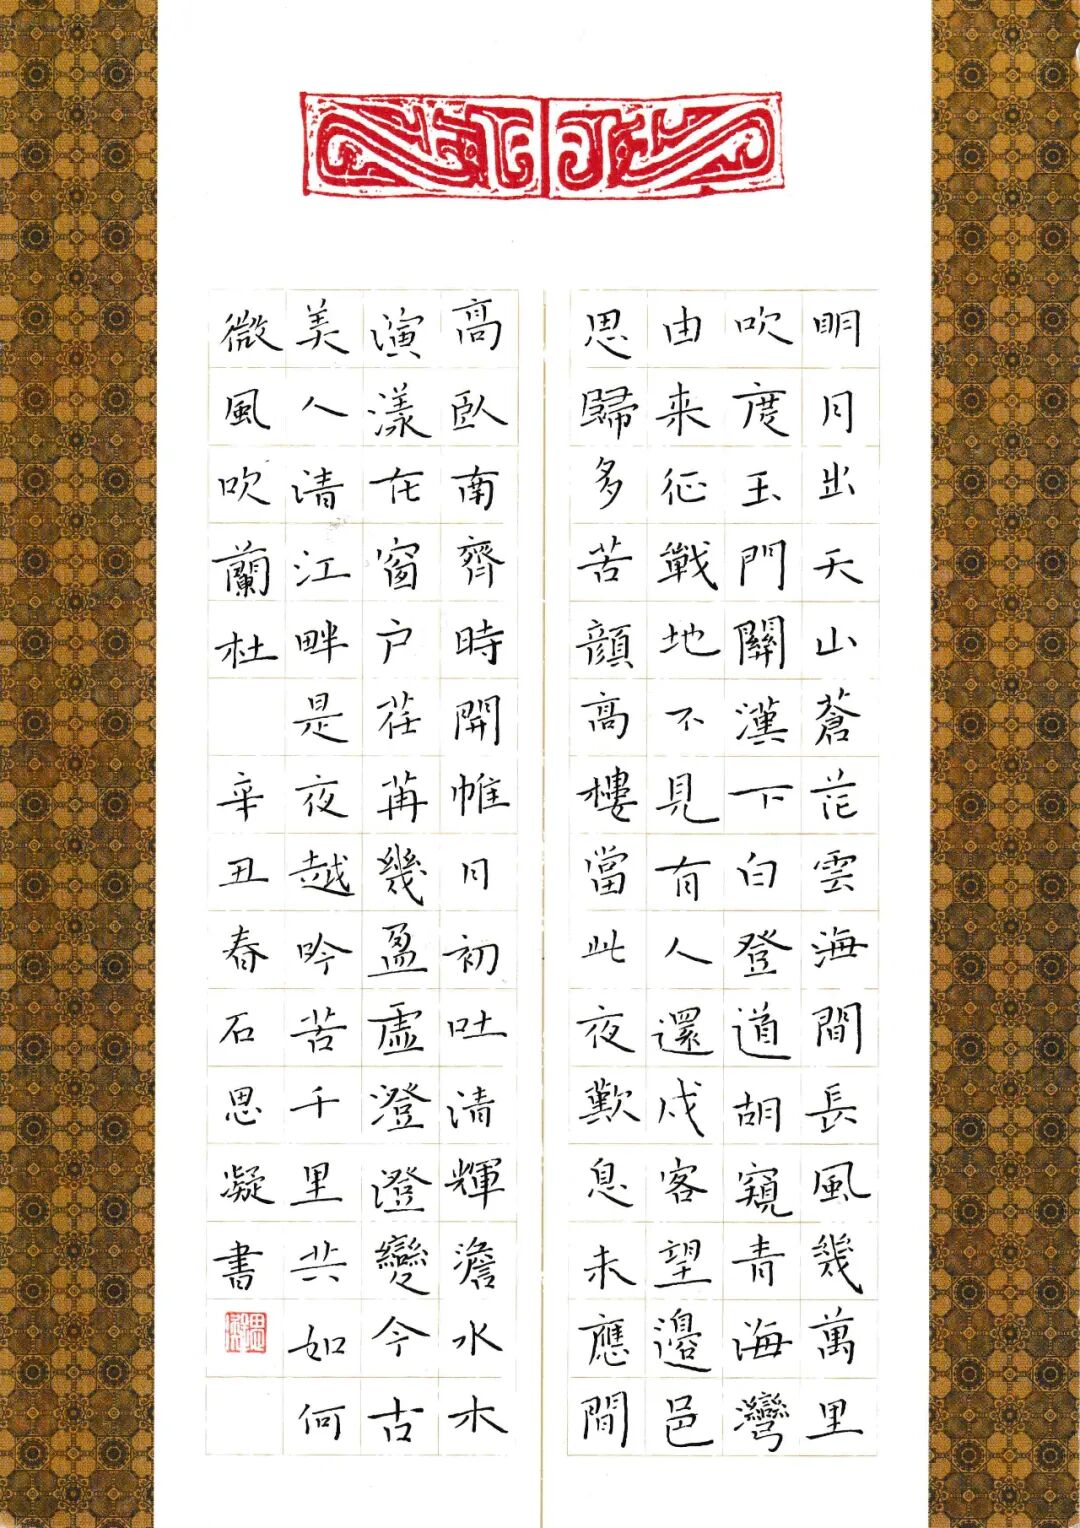 明月出天山蒼茫雲海間長風幾萬里
吹度玉門關漢下白登道胡窺青海灣
由来征戰地不見有人還戍客望邊邑
思歸多苦顔高樓當此夜歎息未應間
高臥南齊時開帷月初吐清輝澹水木
演漾在窗户荏苒幾盈虛澄澄變今古
美人清江畔是夜越吟苦千里共如何
微風吹蘭杜 辛丑春石思凝書